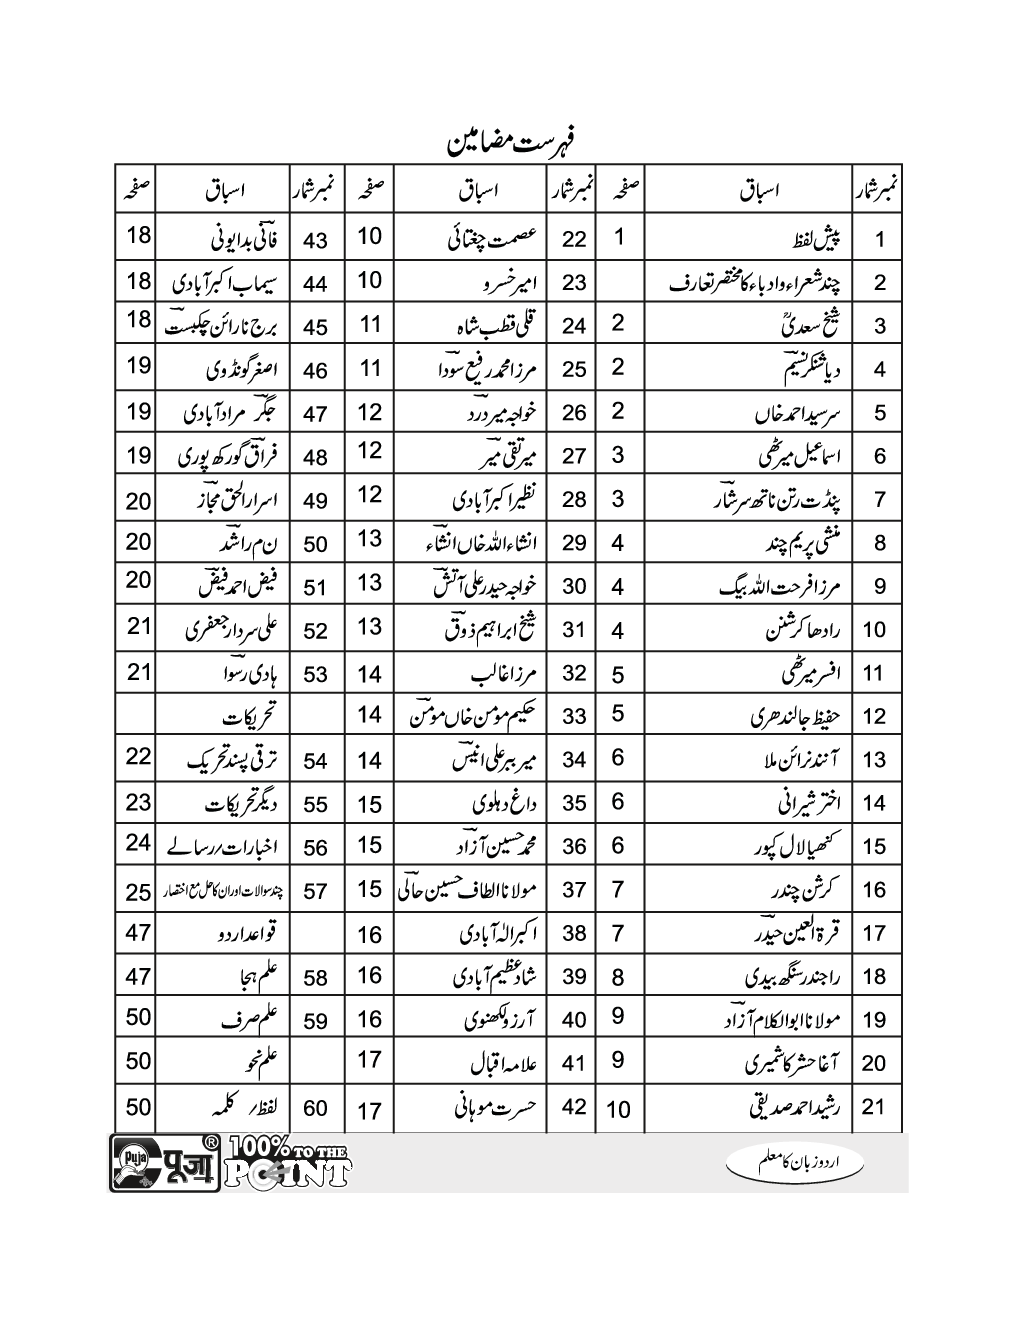 فہرست مضامین
نمبر شمار اسباق صفحہ نمبر شمار اسباق صفحہ نمبر شمار اسباق صفحہ
1 پیش لفظ 1 22 عصمت چغتائی 10 43 فانی بدایونی 18
2 چند شعراء و ادباء کا مختصر تعارف 23 امیر خسرو 10 44 سیماب اکبرآبادی 18
3 شیخ سعدیؒ 2 24 قلی قطب شاہ 11 45 برج نارائن چکبست 18
4 دیا شنکر نسیم 2 25 مرزا محمد رفیع سودا 11 46 اصغر گونڈوی 19
5 سرسید احمد خاں 2 26 خواجہ میر درد 12 47 جگر مرادآبادی 19
6 اسماعیل میرٹھی 3 27 میر تقی میر 12 48 فراق گورکھ پوری 19
7 پنڈت رتن ناتھ سرشار 3 28 نظیر اکبرآبادی 12 49 اسرار الحق مجاز 20
8 منشی پریم چند 4 29 انشاء اللہ خاں انشاء 13 50 ن م راشد 20
9 مرزا فرحت اللہ بیگ 4 30 خواجہ حیدر علی آتش 13 51 فیض احمد فیض 20
10 رادھا کرشنن 4 31 شیخ ابراہیم ذوق 13 52 علی سردار جعفری 21
11 افسر میرٹھی 5 32 مرزا غالب 14 53 ہادی رسوا 21
12 حفیظ جالندھری 5 33 حکیم مومن خاں مومن 14 تحریکات
13 آنند نرائن ملا 6 34 میر ببر علی انیس 14 54 ترقی پسند تحریک 22
14 اختر شیرانی 6 35 داغ دہلوی 15 55 دیگر تحریکات 23
15 کنھیا لال کپور 6 36 محمد حسین آزاد 15 56 اخبارات؍رسالے 24
16 کرشن چندر 7 37 مولانا الطاف حسین حالی 15 57 چند سوالات اور ان کا حل مع اختصار 25
17 قرۃ العین حیدر 7 38 اکبر الہٰ آبادی 16 قواعد اردو 47
18 راجندر سنگھ بیدی 8 39 شاد عظیم آبادی 16 58 علم ہجا 47
19 مولانا ابوالکلام آزاد 9 40 آرزو لکھنوی 16 59 علم صرف 50
20 آغا حشر کاشمیری 9 41 علامہ اقبال 17 علم نحو 50
21 رشید احمد صدیقی 10 42 حسرت موہانی 17 60 لفظ؍ کلمہ 50
Puja पूजा ® 100% TO THE POINT
اردو زبان کا معلم